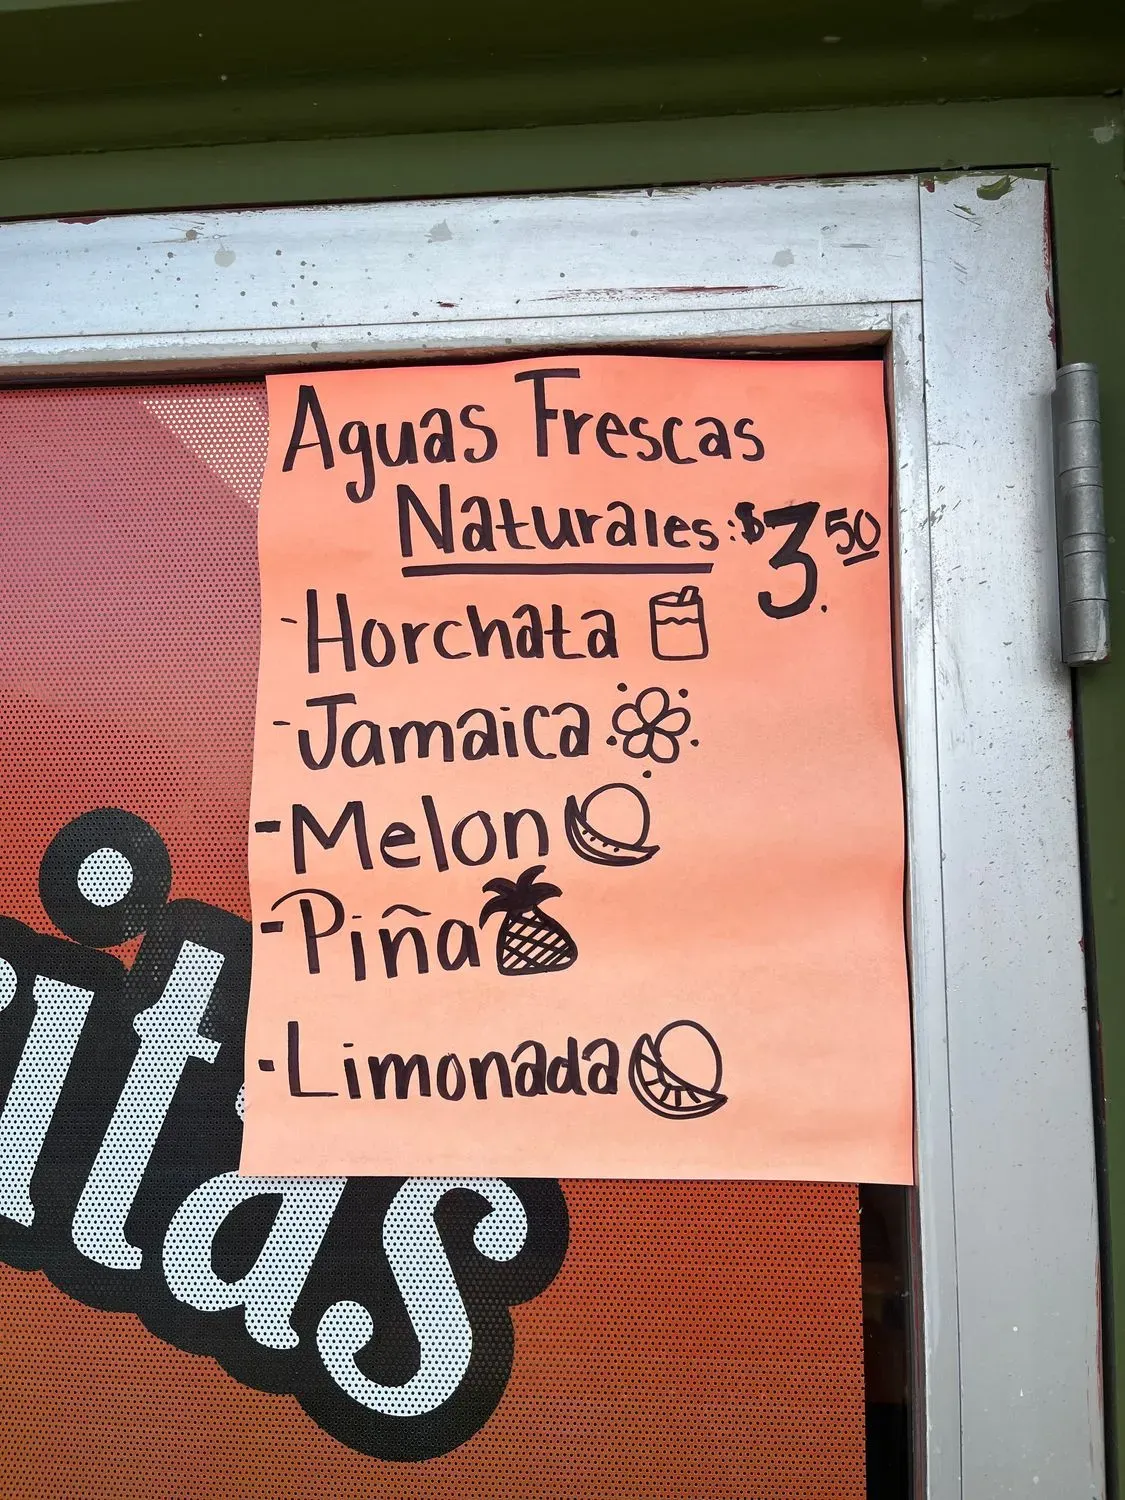 Aguas Frescas
Naturales: $3.50
- Horchata
- Jamaica
- Melon
- Piña
- Limonada
itas